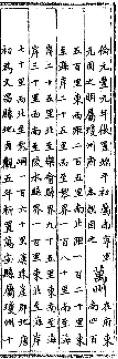 元豐九年復置端平初為南寧軍 在府東
元因之明屬瓊州府 本朝因之 萬州 南四百
五百里東西距一百二十里東
至海岸二十五里西至黎界一百八十里南至海
岸三十里至樂會縣界九十五里東南至海
岸三十里西南至陵水縣界九十里東北至海岸
七十里西北至黎一百六十里漢珠崖郡地唐
初為文昌縣地貞觀五年析置萬安縣屬瓊州十